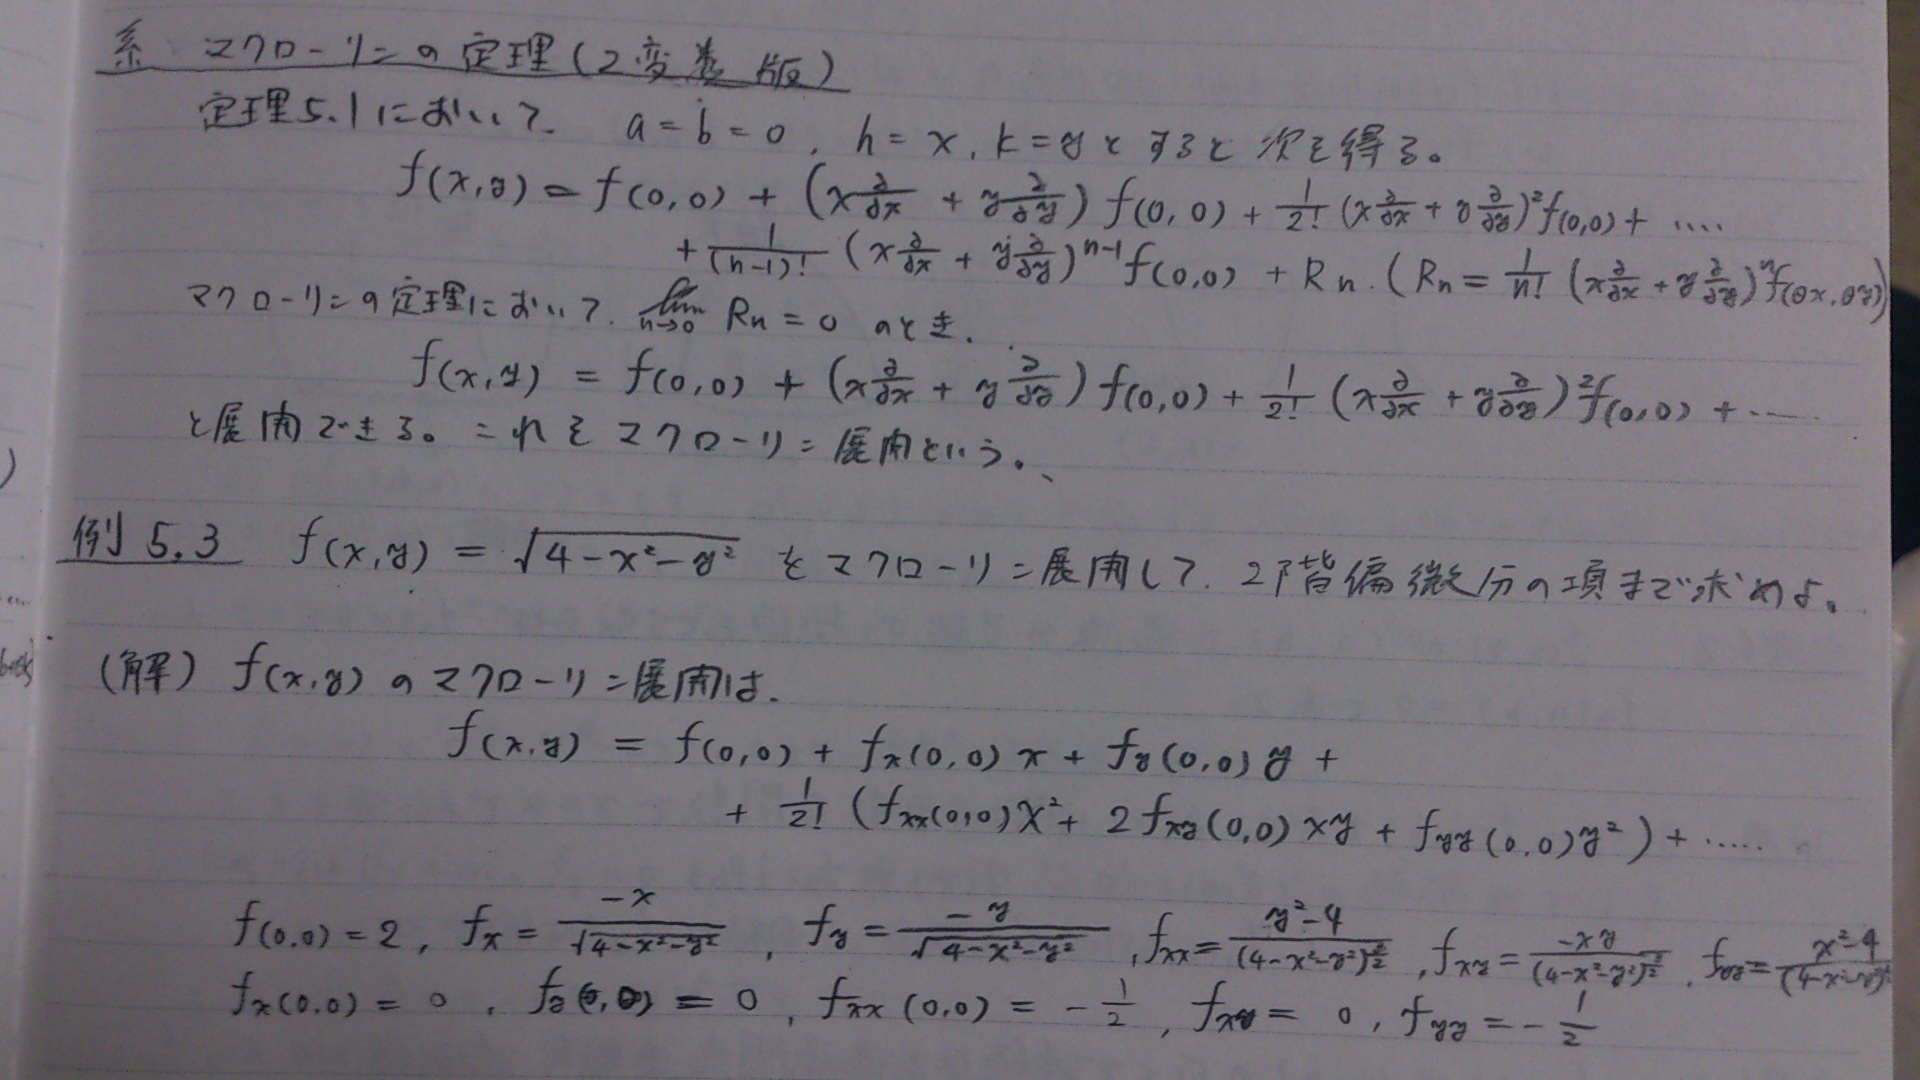 系 マクローリンの定理(2変数版)
定理5.1において、 a = b = 0, h = x, k = y とすると次を得る。
f(x,y) = f(0,0) + (x∂/∂x + y∂/∂y) f(0,0) + 1/2! (x∂/∂x + y∂/∂y)²f(0,0) + ....
+ 1/(n-1)! (x∂/∂x + y∂/∂y)ⁿ⁻¹ f(0,0) + Rn. (Rn = 1/n! (x∂/∂x + y∂/∂y)ⁿf(θx, θy))
マクローリンの定理において、 lim n→0 Rn = 0 のとき、
f(x,y) = f(0,0) + (x∂/∂x + y∂/∂y) f(0,0) + 1/2! (x∂/∂x + y∂/∂y)²f(0,0) + .....
と展開できる。これをマクローリン展開という。
例 5.3 f(x,y) = √(4-x²-y²) をマクローリン展開して、2階偏微分の項まで求めよ。
(解) f(x,y) のマクローリン展開は、
f(x,y) = f(0,0) + fx(0,0) x + fy(0,0) y +
+ 1/2! (fxx(0,0)x² + 2fxy(0,0)xy + fyy(0,0)y²) + .....
f(0,0) = 2, fx = -x/√(4-x²-y²), fy = -y/√(4-x²-y²), fxx = y²-4/(4-x²-y²)^(3/2), fxy = -xy/(4-x²-y²)^(3/2), fyy = x²-4/(4-x²-y²)
fx(0,0) = 0, fy(0,0) = 0, fxx(0,0) = -1/2, fxy = 0, fyy = -1/2